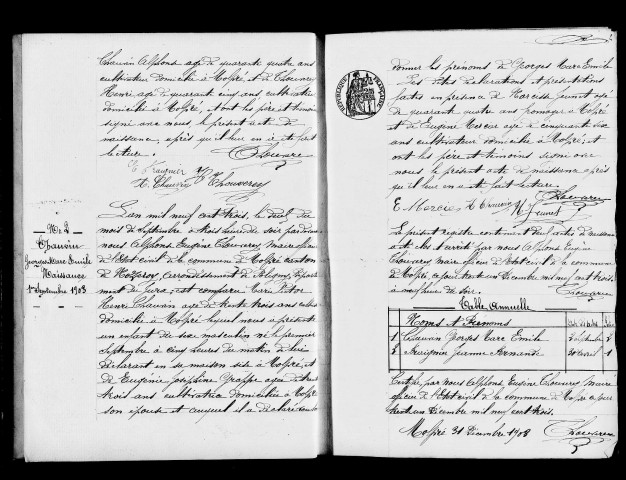 Chauvin Alphonse agé de quarante quatre ans
cultivateur domicilié à Molpré et de Chouvrey
Henri agé de quarante cinq ans cultivateur
domicilié à Molpré, et ont les père et témoins
signé avec nous le présent acte de
naissance, après qu'il leur en a été fait
lecture.
Chauvin
H. Chouvrey
N° 2
Chauvin
Georges Marc Emile
Naissance
1er Septembre 1903
L'an mil neuf cent trois, le deux du
mois de Septembre à trois heures du soir par devant
nous Alphonse Eugène Chouvrey, Maire officier
de l'Etat civil de la commune de Molpré canton
de Nozeroy, arrondissement de Poligny, départe
ment du Jura, est comparu Marie Victor
Henri Chauvin agé de trente trois ans cultivateur
domicilié à Molpré lequel nous a présenté
un enfant du sexe masculin né le premier
Septembre à cinq heures du matin de lui
déclarant en sa maison sise à Molpré, et
de Eugénie Joséphine Grappe agée de trente
trois ans cultivatrice domiciliée à Molpré
son épouse et auquel il a déclaré vouloir
donner les prénoms de Georges Marc Emile
Les dites déclarations et présentations
faites en présence de Narcisse agé
de quarante quatre ans fromager à Molpré
et de Eugène agé de cinquante six
ans cultivateur domicilié à Molpré, et
ont les père et témoins signé avec
nous le présent acte de naissance après
qu'il leur en a été fait lecture.
REPUBLIQUE FRANÇAISE
Le présent registre contenant deux actes de naissance
a été clos et arrêté par nous Alphonse Eugène
Chouvrey Maire officier de l'Etat civil de la commune
de Molpré, ce jour trente un Décembre mil neuf cent trois,
à heures du soir.
Table Annuelle
Noms et Prénoms
1 Chauvin Georges Marc Emile 2 Septembre 2
2 Jeanne Fernande 20 Avril 1
Certifié par nous Alphonse Eugène Chouvrey Maire
officier de l'Etat civil de la commune de Molpré ce jour
trente un Décembre mil neuf cent trois.
Molpré 31 Décembre 1903